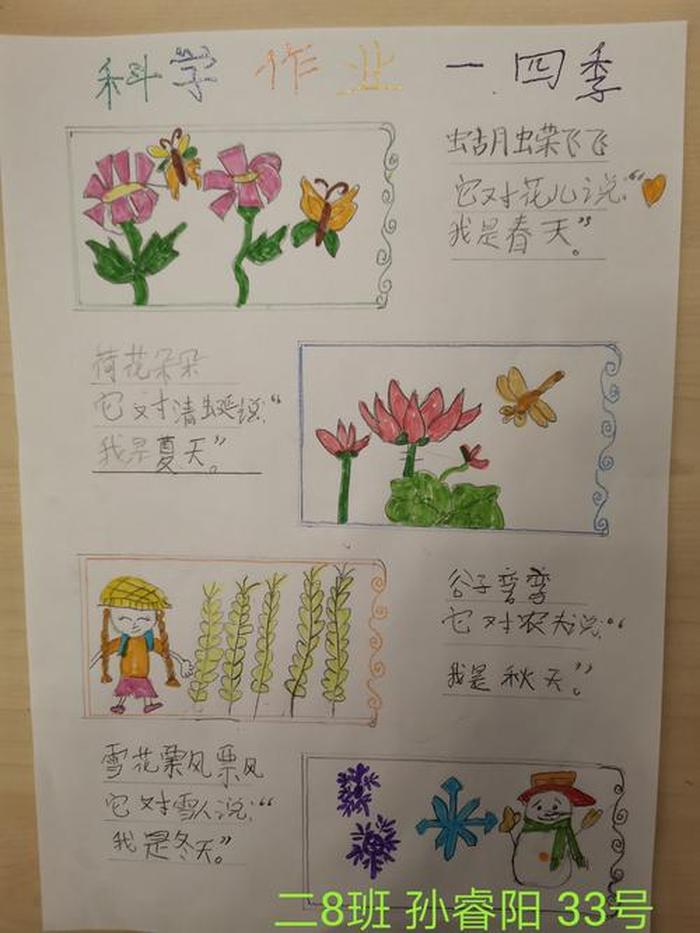 科学作业一四季
蛄月蝶飞飞
它对花儿说:“
我是春天”。
荷花朵朵
它对清蜓说:“
我是夏天”。
谷子弯弯
它对农夫说:“
我是秋天”。
雪花飘飘
它对雪人说:“
我是冬天”。
二8班 孙睿阳 33号